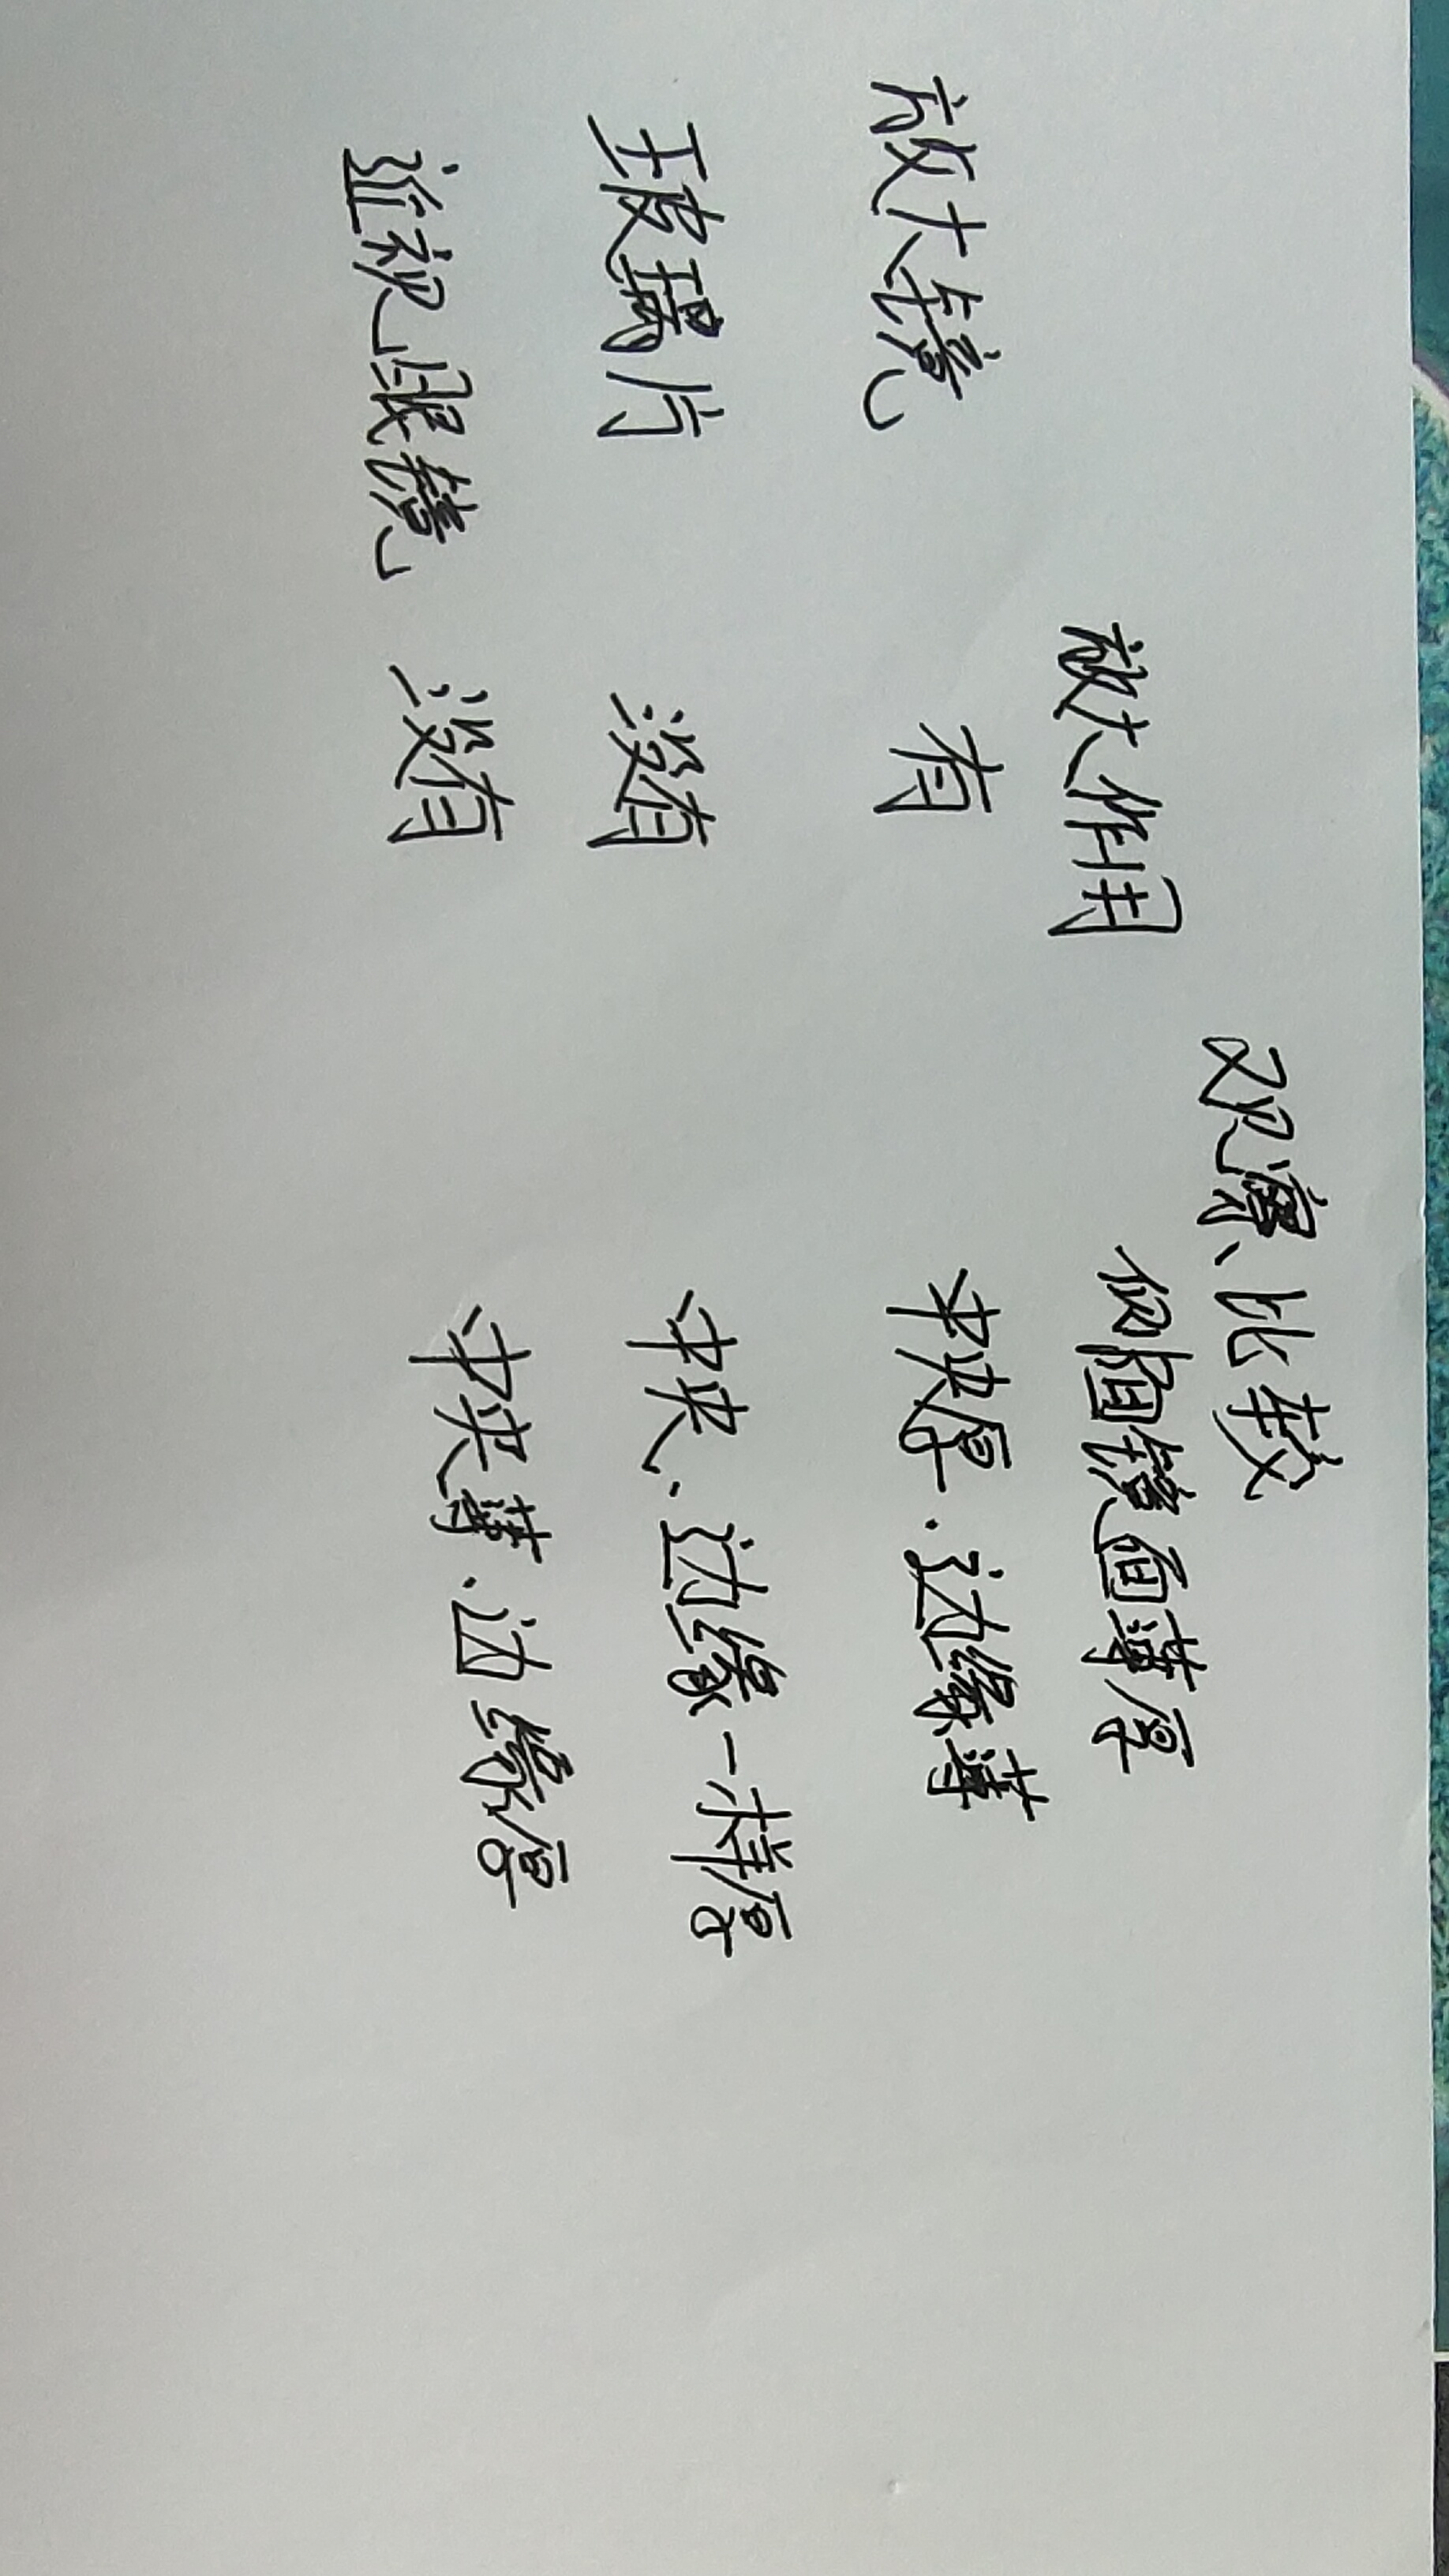 观察、比较
放大作用 侧面镜面薄厚
放大镜 有 中央厚.边缘薄
玻璃片 没有 中央、边缘一样厚
近视眼镜 没有 中央薄.边缘厚